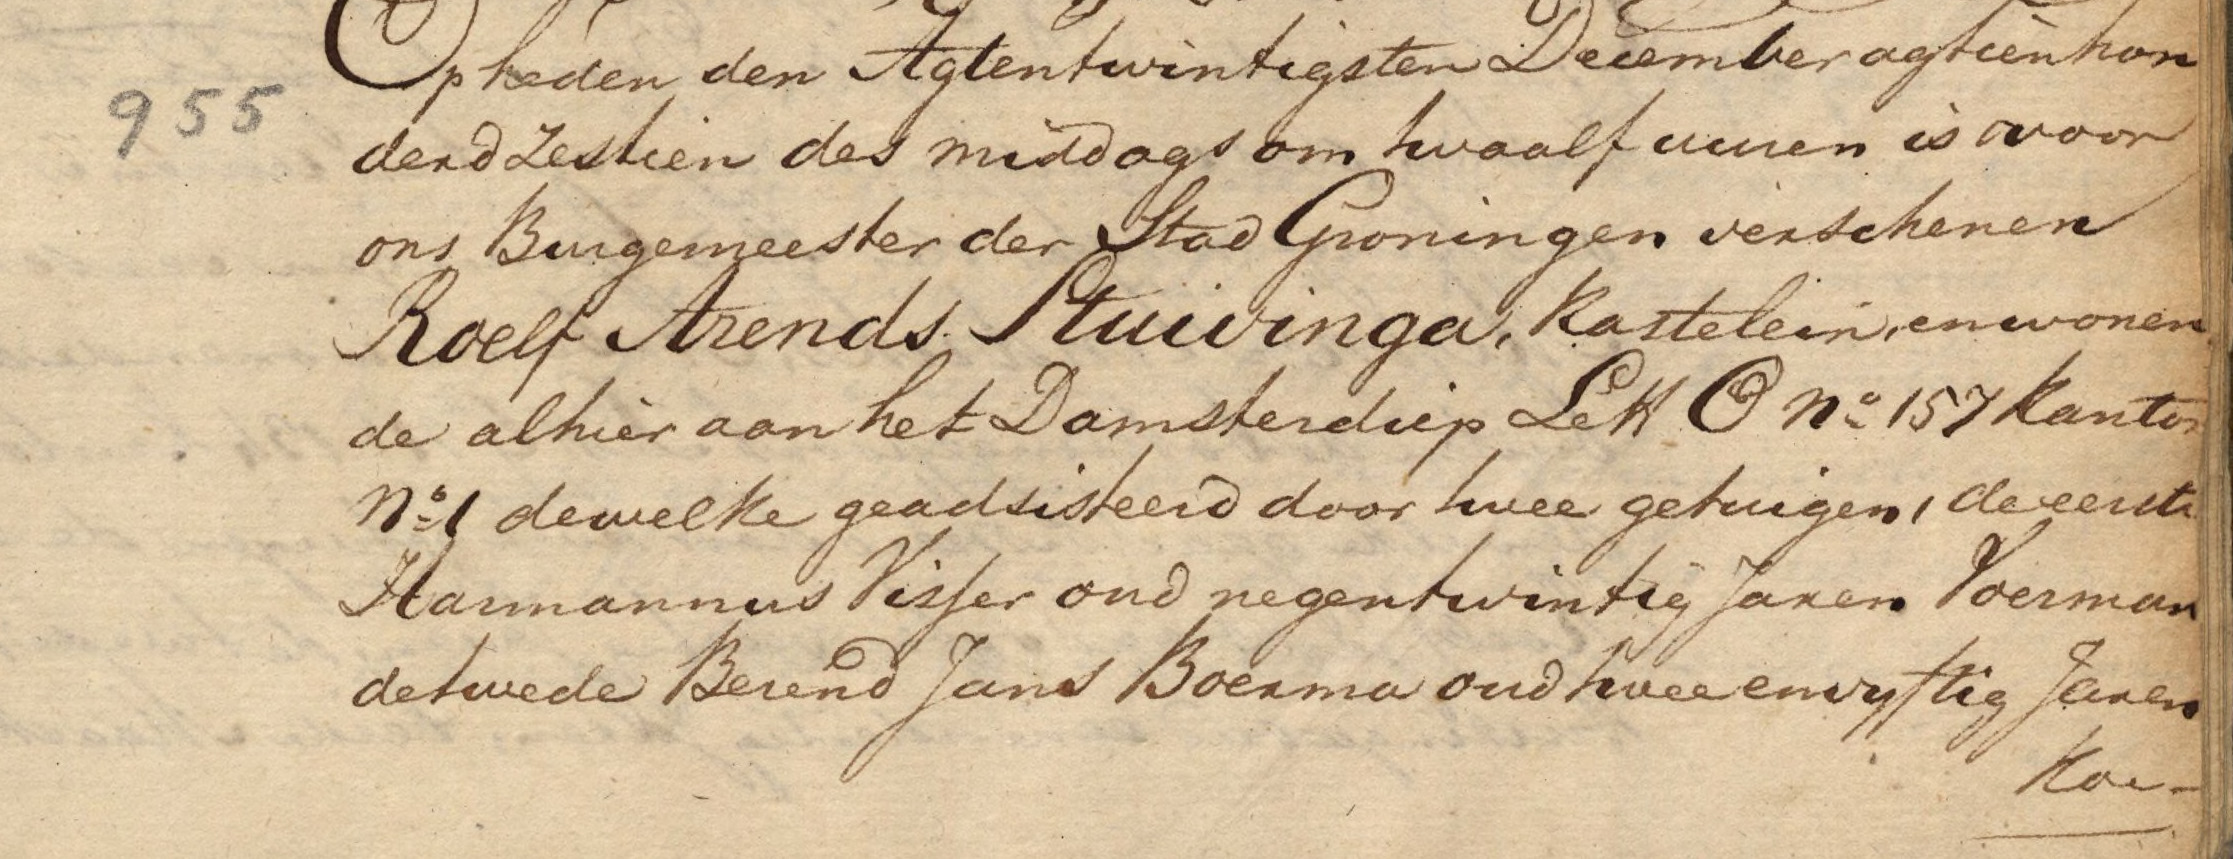 Op heden den Agtentwintigsten December agtienhon
955
derd Zestien des middags om twaalf uuren is voor
ons Burgemeester der Stad Groningen verschenen
Roelf Arends Stuivinga, Kastelein, en wonen
de alhier aan het Damsterdiep Lett O No 157 kanton
No 1 dewelke geadsisteerd door twee getuigen, de eerste
Harmannus Visser oud negentwintig Jaren Voerman
de twede Berend Jans Boerma oud twee en vyftig Jaren
Koe-